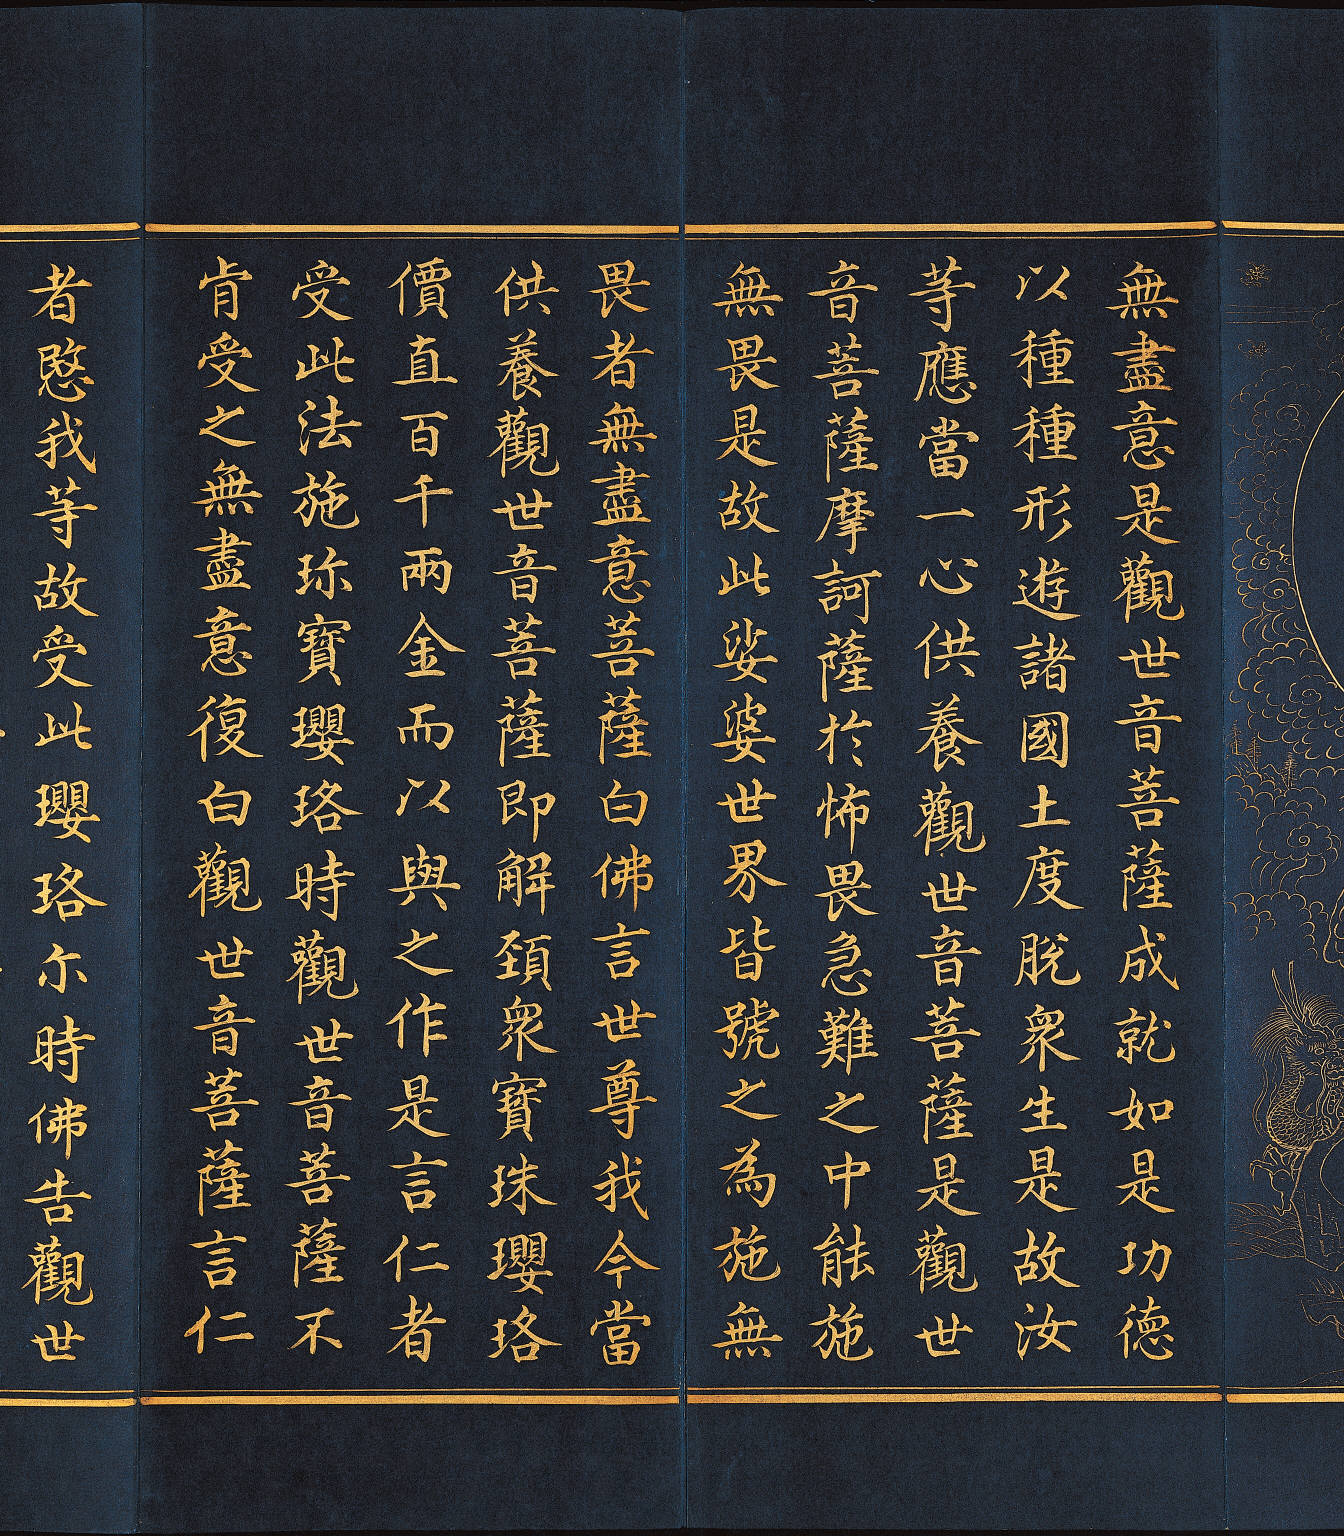 無盡意是觀世音菩薩成就如是功德
以種種形遊諸國土度脫眾生是故汝
等應當一心供養觀世音菩薩是觀世
音菩薩摩訶薩於怖畏急難之中能施
無畏是故此娑婆世界皆號之為施無
畏者無盡意菩薩白佛言世尊我今當
供養觀世音菩薩即解頸眾寶珠瓔珞
價直百千兩金而以與之作是言仁者
受此法施珎寶瓔珞時觀世音菩薩不
肯受之無盡意復白觀世音菩薩言仁
者愍我等故受此瓔珞尓時佛告觀世